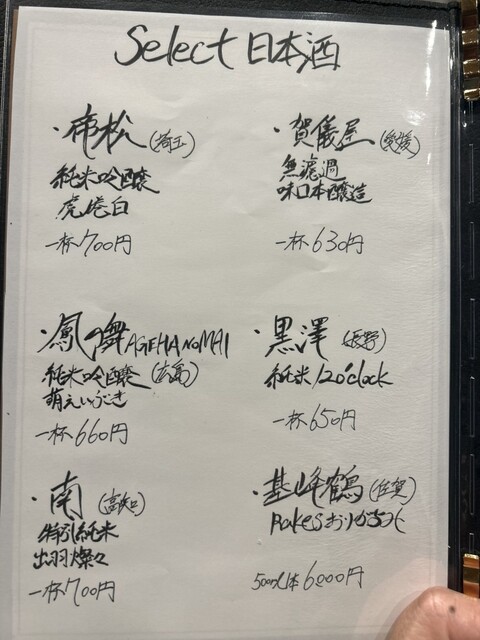 Select 日本酒
・帝松(埼玉)
純米吟醸
虎捲白
一杯700円
・賀儀屋(愛媛)
無濾過
味口本醸造
一杯630円
・鳳の舞AGEHA no MAI
純米吟醸(広島)
萌えいぶき
一杯660円
・黒澤(長野)
純米12o'clock
一杯650円
・南(高知)
特別純米
出羽燦々
一杯700円
・基峰鶴(佐賀)
Rakesおりがらみ
500ml1本6000円